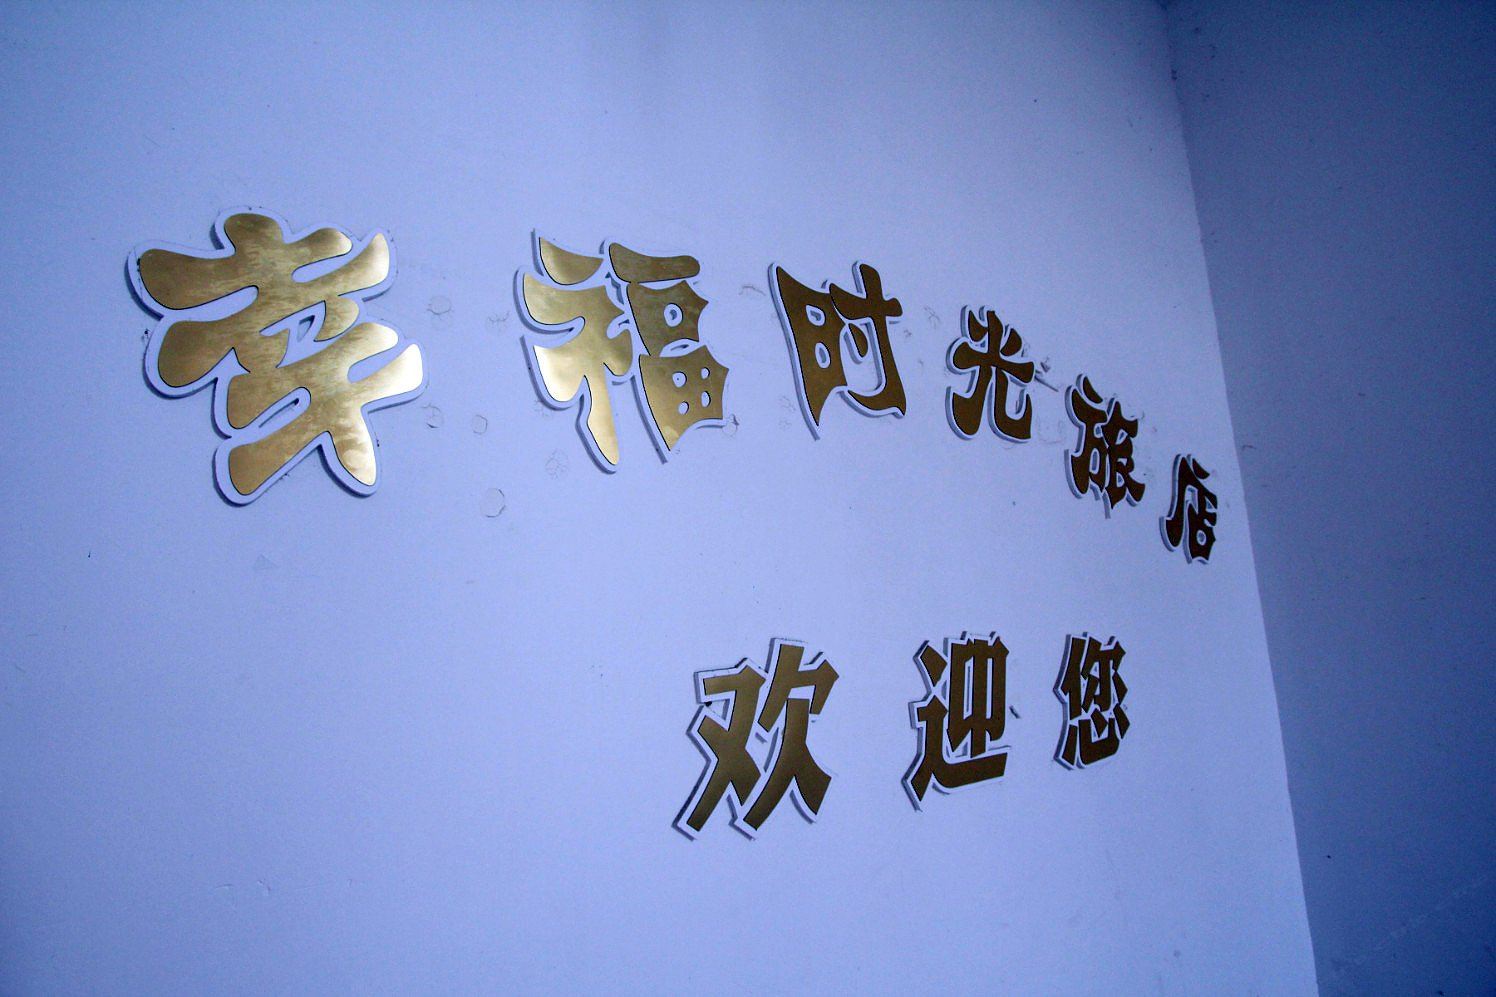 幸福时光旅店
欢迎您